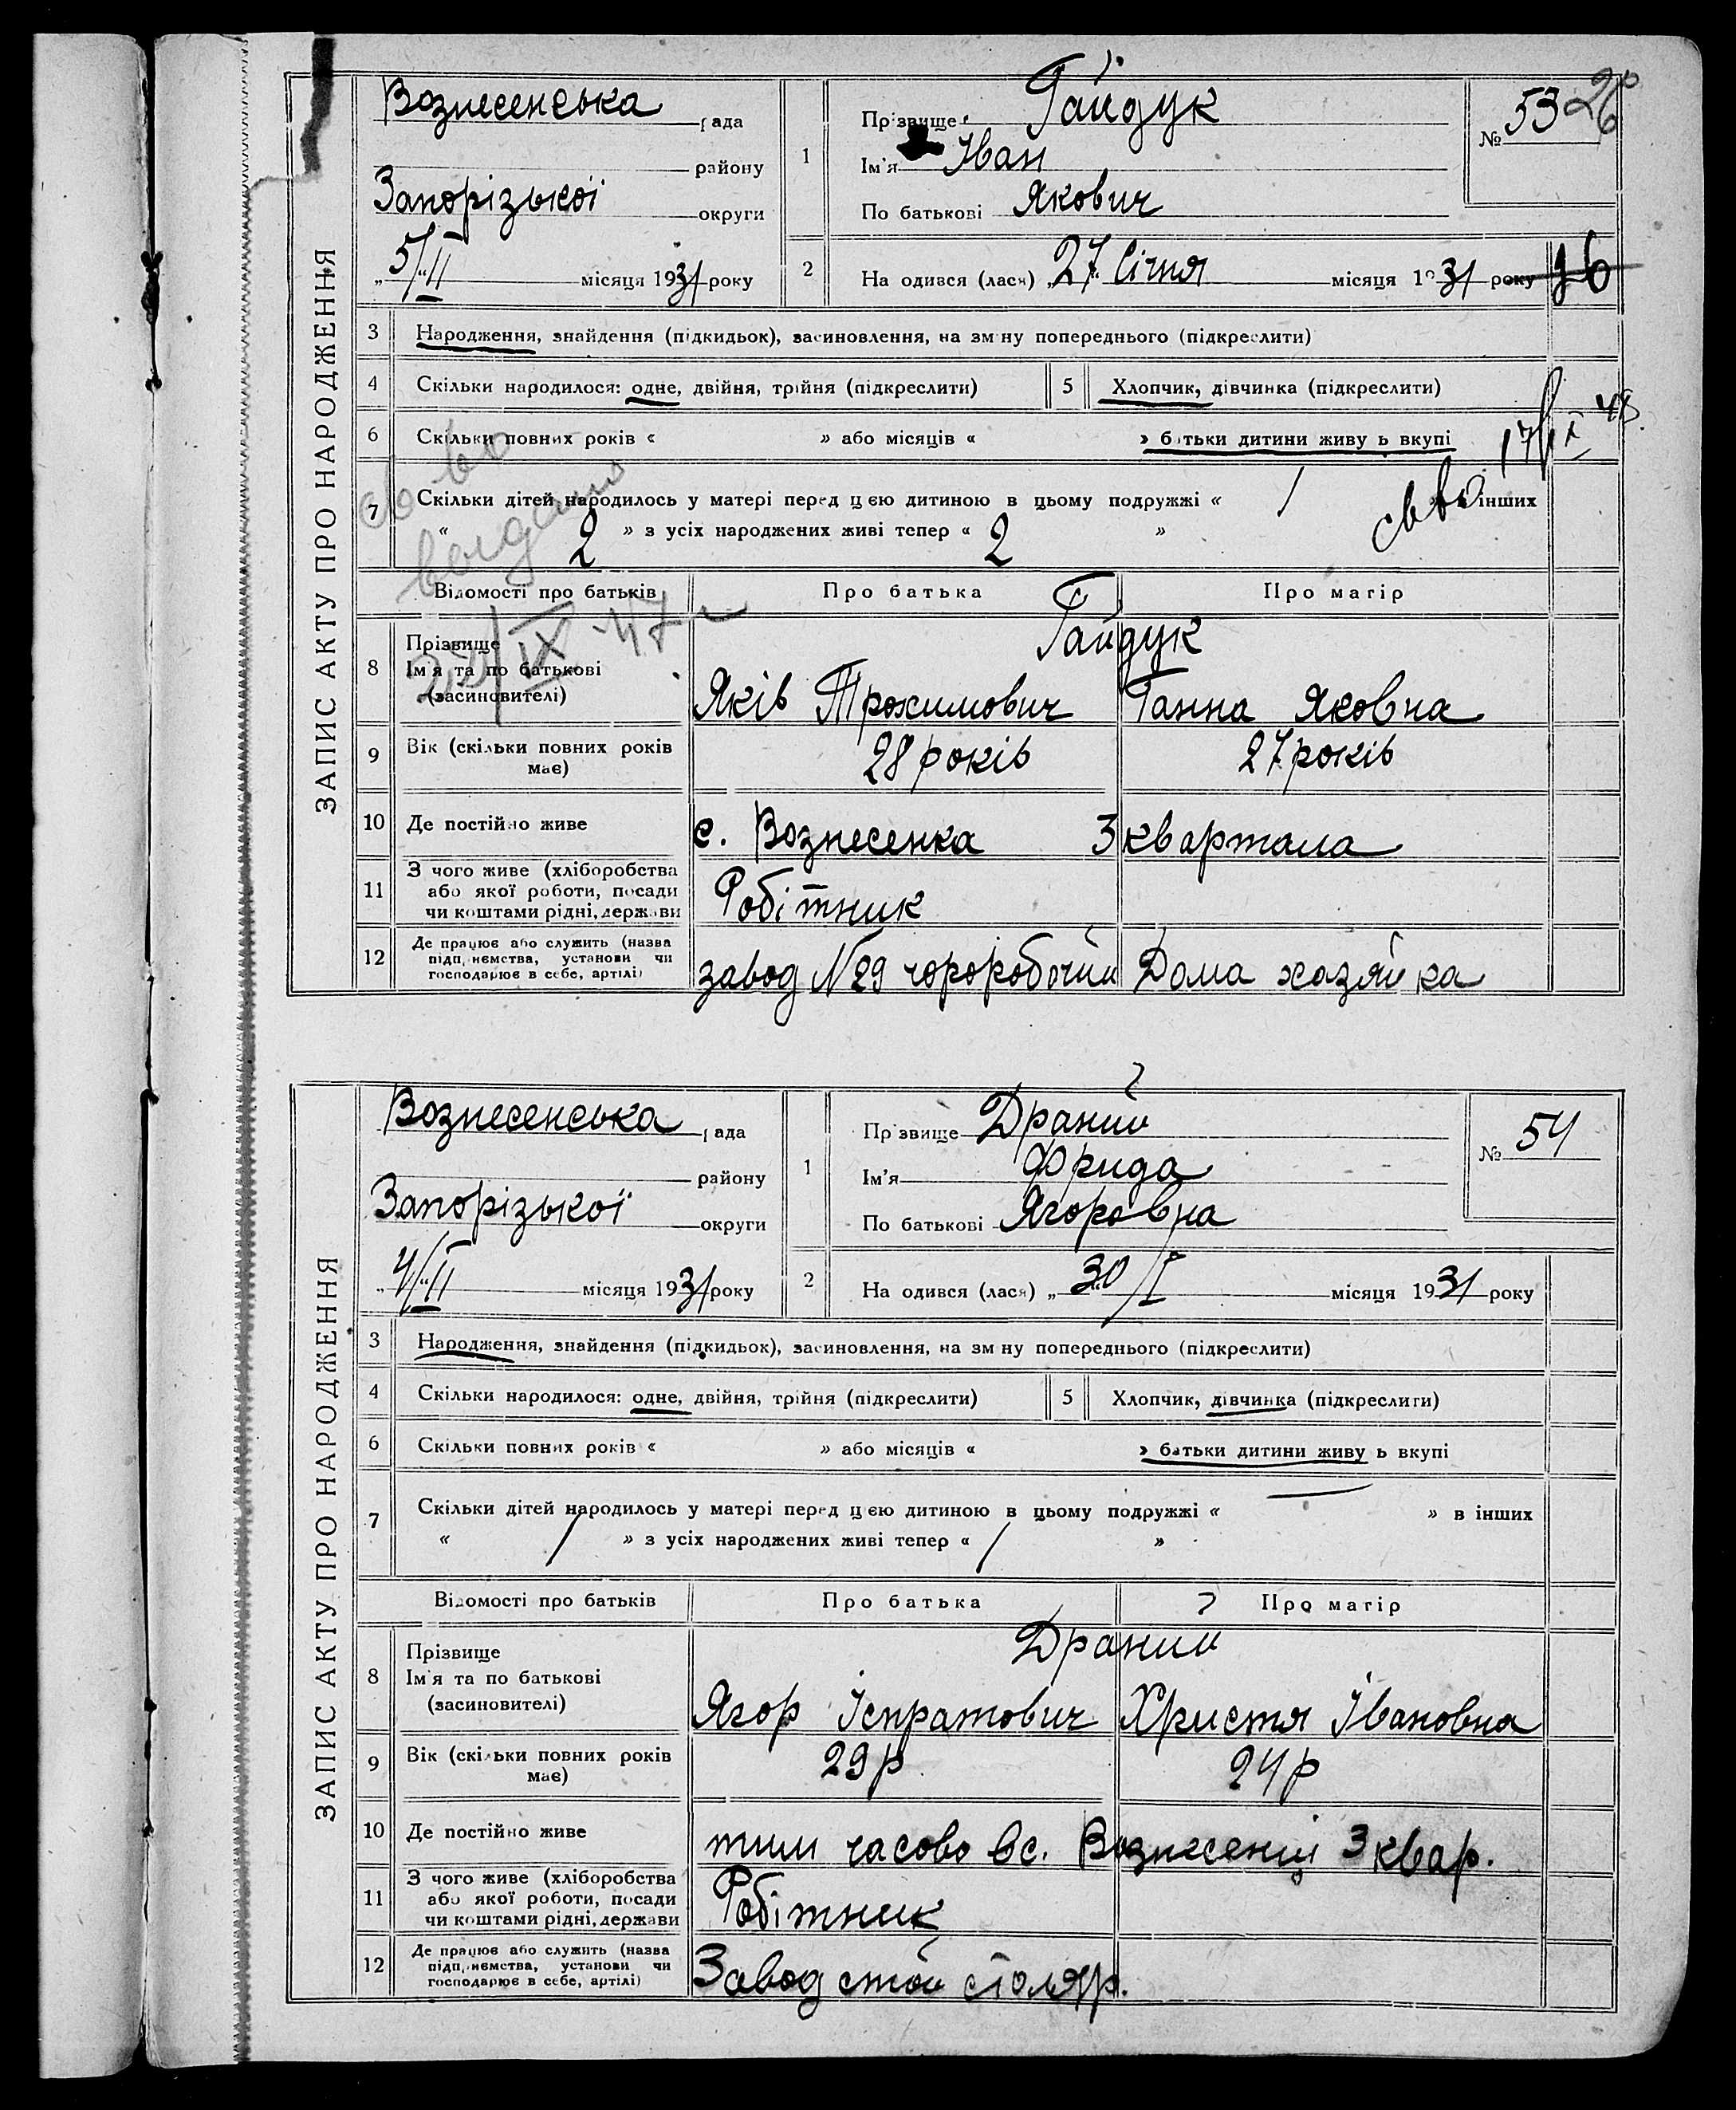 ЗАПИС АКТУ ПРО НАРОДЖЕННЯ
Вознесенська рада
району
Запорізької округи
„5/ІІ місяця 1931 року
1
Прізвище Гайдук
Ім'я Іван
По батькові Якович
№ 53
26
2
На одився (лася) „27 Січня місяця 1931 року
3 Народження, знайдення (підкидьок), засиновлення, на зм ну попереднього (підкреслити)
4 Скільки народилося: одне, двійня, трійня (підкреслити)
5 Хлопчик, дівчинка (підкреслити)
6 Скільки повних років « » або місяців « » батьки дитини живу ь вкупі
7 Скільки дітей народилось у матері перед цією дитиною в цьому подружжі « / інших
« 2 » з усіх народжених живі тепер « 2 »
св во
видано
22/ІХ 47
св во
17/ІХ 48
Відомості про батьків Про батька Про матір
8 Прізвище
Ім'я та по батькові
(засиновителі)
Гайдук
Яків Трохимович Ганна Яковна
9 Вік (скільки повних років
має)
28 років 27 років
10 Де постійно живе с. Вознесенка 3 квартала
11 З чого живе (хліборобства
або якої роботи, посади
чи коштами рідні, держави
Робітник
12 Де працює або служить (назва
підп,иємства, установи чи
господарює в себе, артілі)
завод N 29 чоророботчий Дома хазяйка
ЗАПИС АКТУ ПРО НАРОДЖЕННЯ
Вознесенська рада
району
Запорізької округи
„4/ІІ місяця 1931 року
1
Пр звище Драний
Ім'я Фрида
По батькові Ягоровна
№ 54
2
На одився (лася) „30/І місяця 1931 року
3 Народження, знайдення (підкидьок), засиновлення, на зм ну попереднього (підкреслити)
4 Скільки народилося: одне, двійня, трійня (підкреслити)
5 Хлопчик, дівчинка (підкреслити)
6 Скільки повних років « » або місяців « » батьки дитини живу ь вкупі
7 Скільки дітей народилось у матері перед цією дитиною в цьому подружжі « — » в інших
« / » з усіх народжених живі тепер « / »
Відомості про батьків Про батька Про матір
8 Прізвище
Ім'я та по батькові
(засиновителі)
Драний
Ягор Іспратович Христя Івановна
9 Вік (скільки повних років
має)
29 р 24 р
10 Де постійно живе тим часово в с. Вознесенці 3 квар.
11 З чого живе (хліборобства
або якої роботи, посади
чи коштами рідні, держави
Робітник
12 Де працює або служить (назва
підп,иємства, установи чи
господарює в себе, артілі)
Завод столяр.